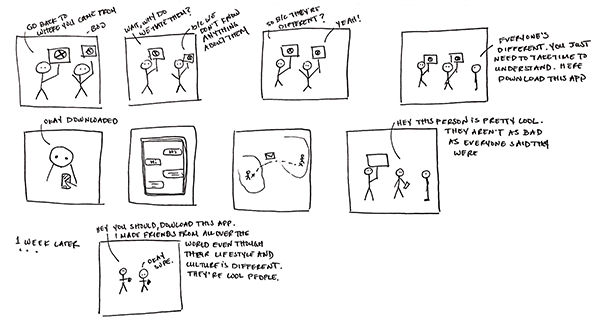 GO BACK TO
WHERE YOU CAME FROM
BOO
WAIT, WHY DO
WE HATE THEM?
B/C WE
DON'T KNOW
ANYTHING
ABOUT THEM
SO B/C THEY'RE
DIFFERENT?
YEAH!
EVERYONE'S
DIFFERENT. YOU JUST
NEED TO TAKE TIME TO
UNDERSTAND. HERE
DOWNLOAD THIS APP
OKAY DOWNLOADED
HEY THIS PERSON IS PRETTY COOL.
THEY AREN'T AS BAD
AS EVERYONE SAID THEY
WERE
1 WEEK LATER
...
HEY YOU SHOULD, DOWLOAD THIS APP.
I MADE FRIENDS FROM ALL OVER THE
WORLD EVEN THOUGH
THEIR LIFESTYLE AND
CULTURE IS DIFFERENT.
THEY'RE COOL PEOPLE.
OKAY